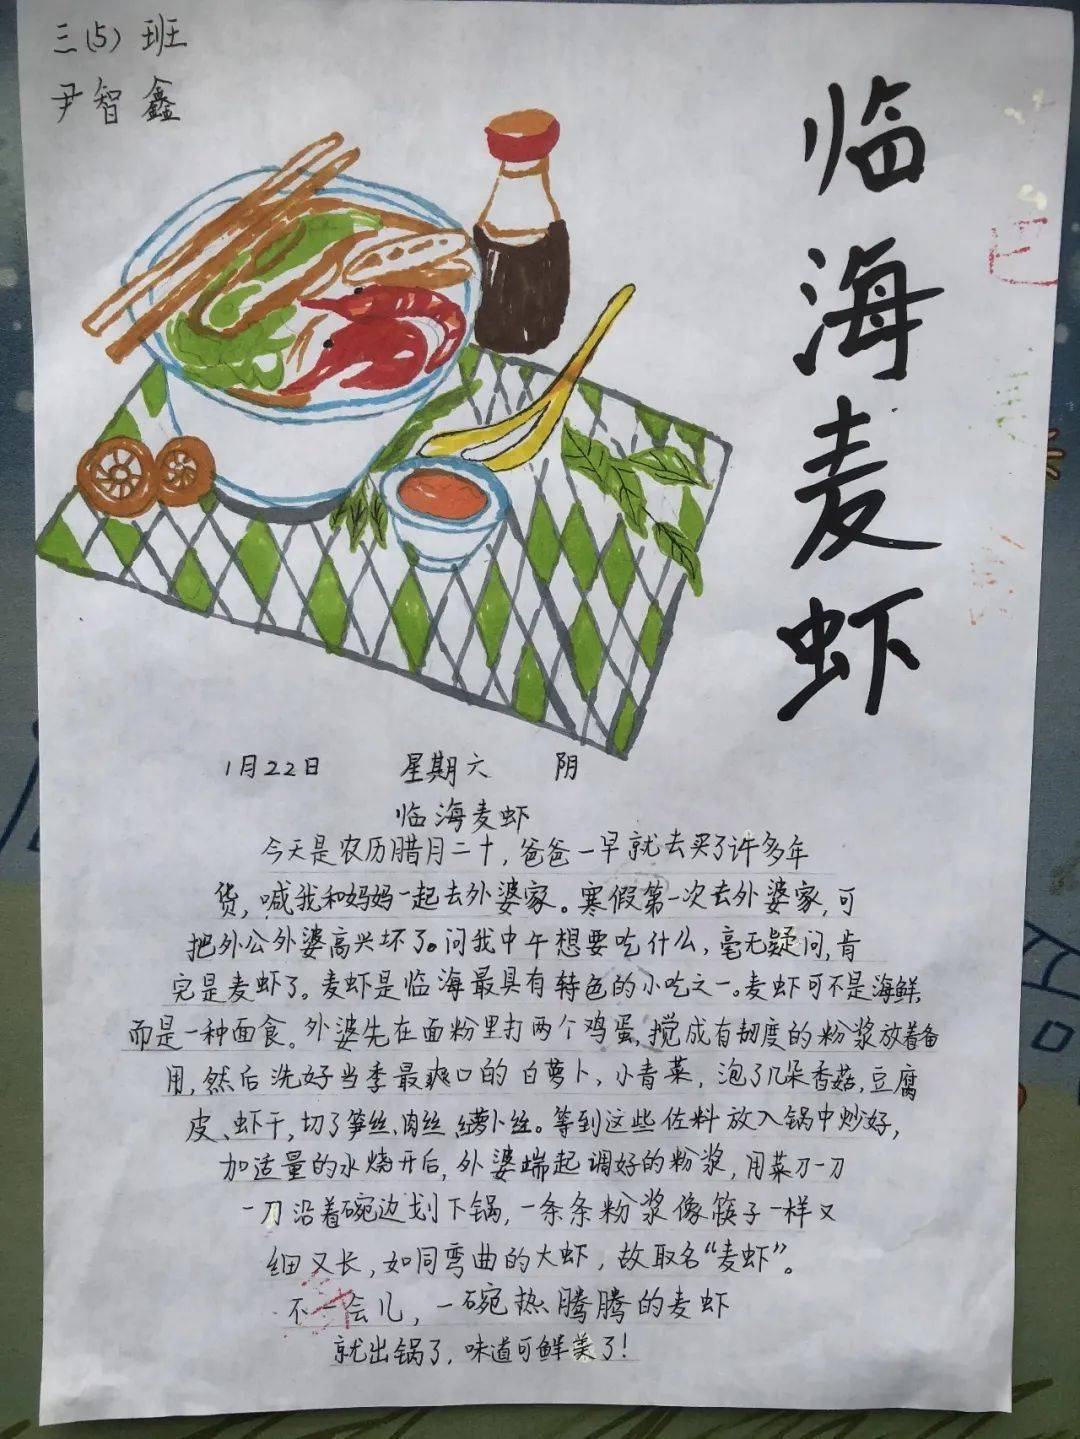 三(5)班
尹智鑫
临海麦虾
1月22日 星期六 阴
临海麦虾
今天是农历腊月二十，爸爸一早就去买了许多年
货，喊我和妈妈一起去外婆家。寒假第一次去外婆家，可
把外公外婆高兴坏了。问我中午想要吃什么，毫无疑问，肯
定是麦虾了。麦虾是临海最具有特色的小吃之一。麦虾可不是海鲜，
而是一种面食。外婆先在面粉里打两个鸡蛋，搅成有韧度的粉浆放着备
用，然后洗好当季最爽口的白萝卜，小青菜，泡了几朵香菇，豆腐
皮、虾干，切了笋丝、肉丝、萝卜丝。等到这些佐料放入锅中炒好，
加适量的水烧开后，外婆端起调好的粉浆，用菜刀一刀
一刀沿着碗边划下锅，一条条粉浆像筷子一样又
细又长，如同弯曲的大虾，故取名“麦虾”。
不一会儿，一碗热腾腾的麦虾
就出锅了，味道可鲜美了！